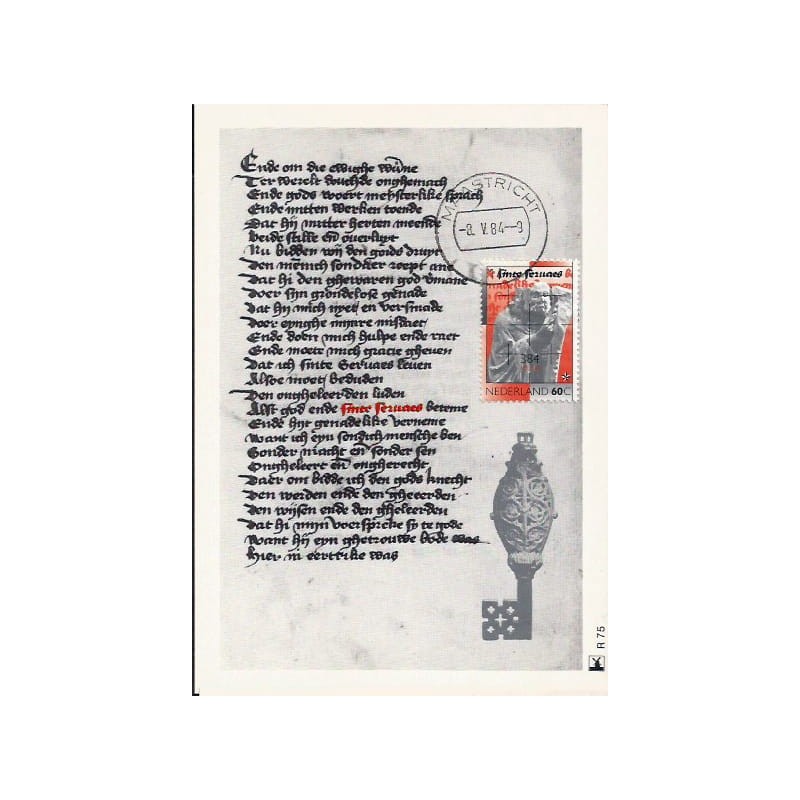 Ende om die ewighe wũne
Ter werelt wuchde onghemach
Ende gods woert mehsterlike sprach
Ende mitten werken toende
Dat hij mitter herten meende
beide stille en̄ overluyt
Nu bidden wij den goids druyt
Den mēnich sondaer roept ane
Dat hi den ghewaren god vmane
Doer sijn grondelose genade
Dat hij mich nyet en versmade
Doer eynghe mijnre misdaet
Ende doen mich hulpe ende raet
Ende moete mich gracie gheuen
Dat ich sinte Seruaes leuen
Alsoe moet beduden
Den ongheleerden luden
Alst god ende sinte seruaes beteme
Ende hijt genadelike verneme
Want ich eyn sondich mensche ben
Sonder macht en̄ sonder sen
Ongheleert en̄ ongherecht
Daer om bidde ich den gods knecht
Den werden ende den gheeerden
Den wijsen ende den gheleerden
Dat hi mijn voersprake sy te gode
Want hij eyn ghetrouwe bode was
Hier in eertrike was
MAASTRICHT
-8. V. 84--9
sinte seruaes be
adelike verneme
384
NEDERLAND 60C
R 75